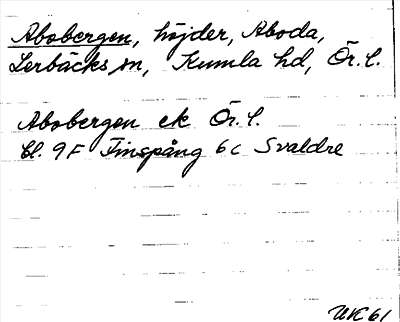 Abobergen, höjder, Aboda,
Lerbäcks sn, Kumla hd, Ör. l.
Abobergen ek Ör. l.
Bl. 9F Finspång 6c Svaldre
UK 61